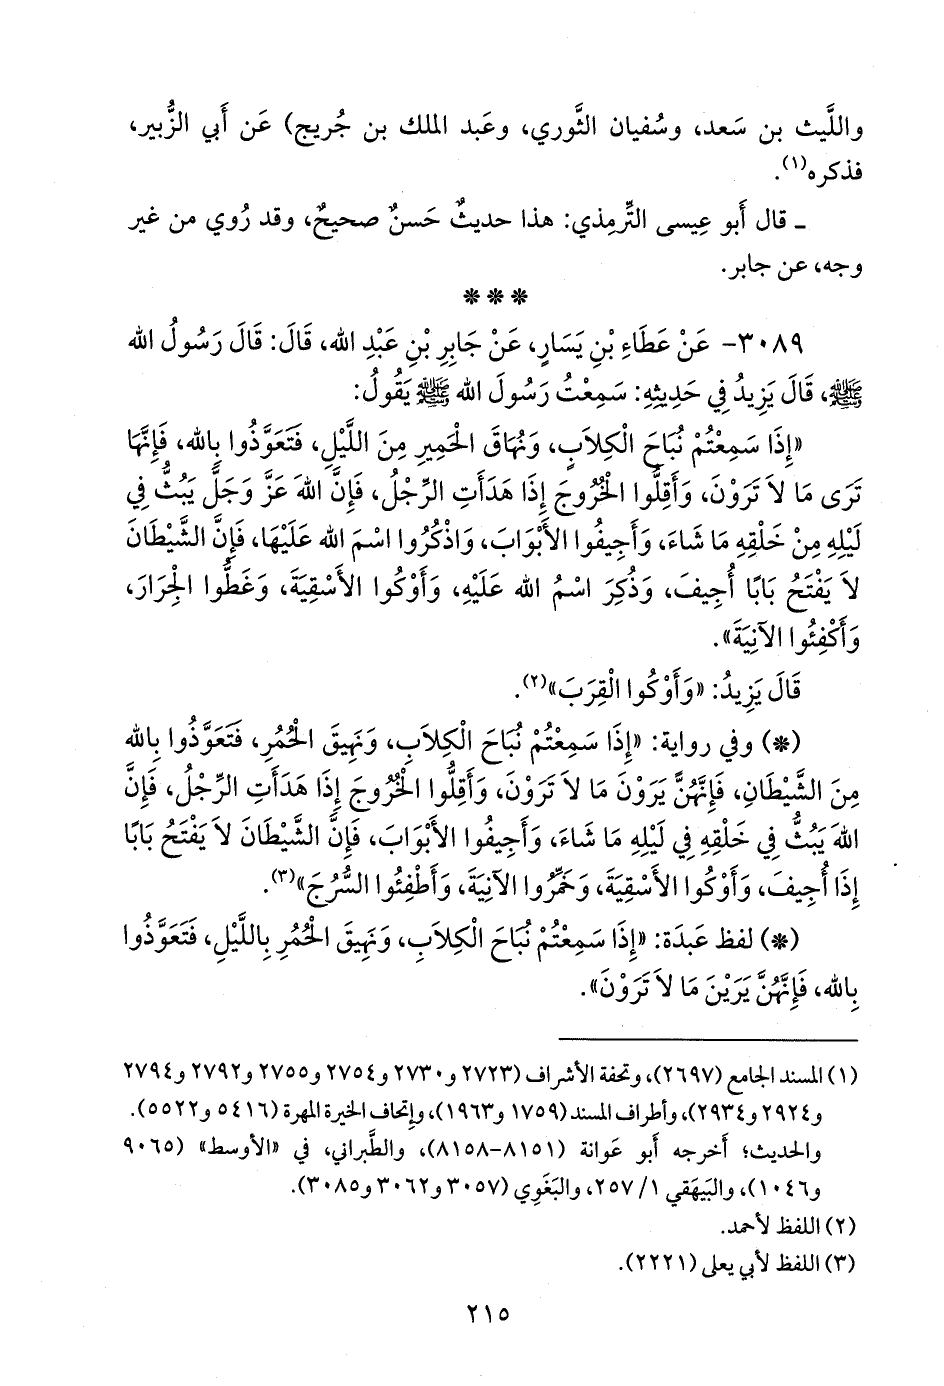 والليث بن سَعد، وسُفيان الثَّوري، وعَبد الملك بن جُريج) عَن أَبي الزُّبير،
فذكره(١).
ـ قال أَبو عِيسى التِّرمِذي: هذا حديثٌ حَسنٌ صحيحٌ، وقد رُوي من غير
وجه، عن جابر.
***
٣٠٨٩- عَنْ عَطَاءِ بْنِ يَسَارٍ، عَنْ جَابِرِ بْنِ عَبْدِ الله، قَالَ: قَالَ رَسُولُ الله
ﷺ، قَالَ يَزِيدُ فِي حَدِيثِهِ: سَمِعْتُ رَسُولَ الله ﷺ يَقُولُ:
«إِذَا سَمِعْتُمْ نُبَاحَ الْكِلاَبِ، وَنُهَاقَ الْحَمِيرِ مِنَ اللَّيْلِ، فَتَعَوَّذُوا بِالله، فَإِنَّهَا
تَرَى مَا لاَ تَرَوْنَ، وَأَقِلُّوا الْخُرُوجَ إِذَا هَدَأَتِ الرِّجْلُ، فَإِنَّ اللهَ عَزَّ وَجَلَّ يَبُثُّ فِي
لَيْلِهِ مِنْ خَلْقِهِ مَا شَاءَ، وَأَجِيفُوا الأَبْوَابَ، وَاذْكُرُوا اسْمَ الله عَلَيْهَا، فَإِنَّ الشَّيْطَانَ
لاَ يَفْتَحُ بَابًا أُجِيفَ، وَذُكِرَ اسْمُ الله عَلَيْهِ، وَأَوْكُوا الأَسْقِيَةَ، وَغَطُّوا الْجِرَارَ،
وَأَكْفِئُوا الآنِيَةَ».
قَالَ يَزِيدُ: «وَأَوْكُوا الْقِرَبَ»(٢).
(*) وفي رواية: «إِذَا سَمِعْتُمْ نُبَاحَ الْكِلاَبِ، وَنَهِيقَ الْحُمُرِ، فَتَعَوَّذُوا بِالله
مِنَ الشَّيْطَانِ، فَإِنَّهُنَّ يَرَوْنَ مَا لاَ تَرَوْنَ، وَأَقِلُّوا الْخُرُوجَ إِذَا هَدَأَتِ الرِّجْلُ، فَإِنَّ
اللهَ يَبُثُّ فِي خَلْقِهِ فِي لَيْلِهِ مَا شَاءَ، وَأَجِيفُوا الأَبْوَابَ، فَإِنَّ الشَّيْطَانَ لاَ يَفْتَحُ بَابًا
إِذَا أُجِيفَ، وَأَوْكُوا الأَسْقِيَةَ، وَخَمِّرُوا الآنِيَةَ، وَأَطْفِئُوا السُّرُجَ»(٣).
(*) لفظ عَبدَة: «إِذَا سَمِعْتُمْ نُبَاحَ الْكِلاَبِ، وَنَهِيقَ الْحُمُرِ بِاللَّيْلِ، فَتَعَوَّذُوا
بِالله، فَإِنَّهُنَّ يَرَيْنَ مَا لاَ تَرَوْنَ».
(١) المسند الجامع (٢٦٩٧)، وتحفة الأشراف (٢٧٢٣ و٢٧٣٠ و٢٧٥٤ و٢٧٥٥ و٢٧٩٢ و٢٧٩٤
و٢٩٢٤ و٢٩٣٤)، وأطراف المسند (١٧٥٩ و١٩٦٣)، وإتحاف الخيرة المهرة (٥٤١٦ و٥٥٢٢).
والحديث؛ أخرجه أَبو عَوانة (٨١٥١-٨١٥٨)، والطَّبراني، في «الأوسط» (٩٠٦٥
و١٠٤٦)، والبَيهَقي ١/ ٢٥٧، والبَغَوِي (٣٠٥٧ و٣٠٦٢ و٣٠٨٥).
(٢) اللفظ لأحمد.
(٣) اللفظ لأبي يعلى (٢٢٢١).
٢١٥